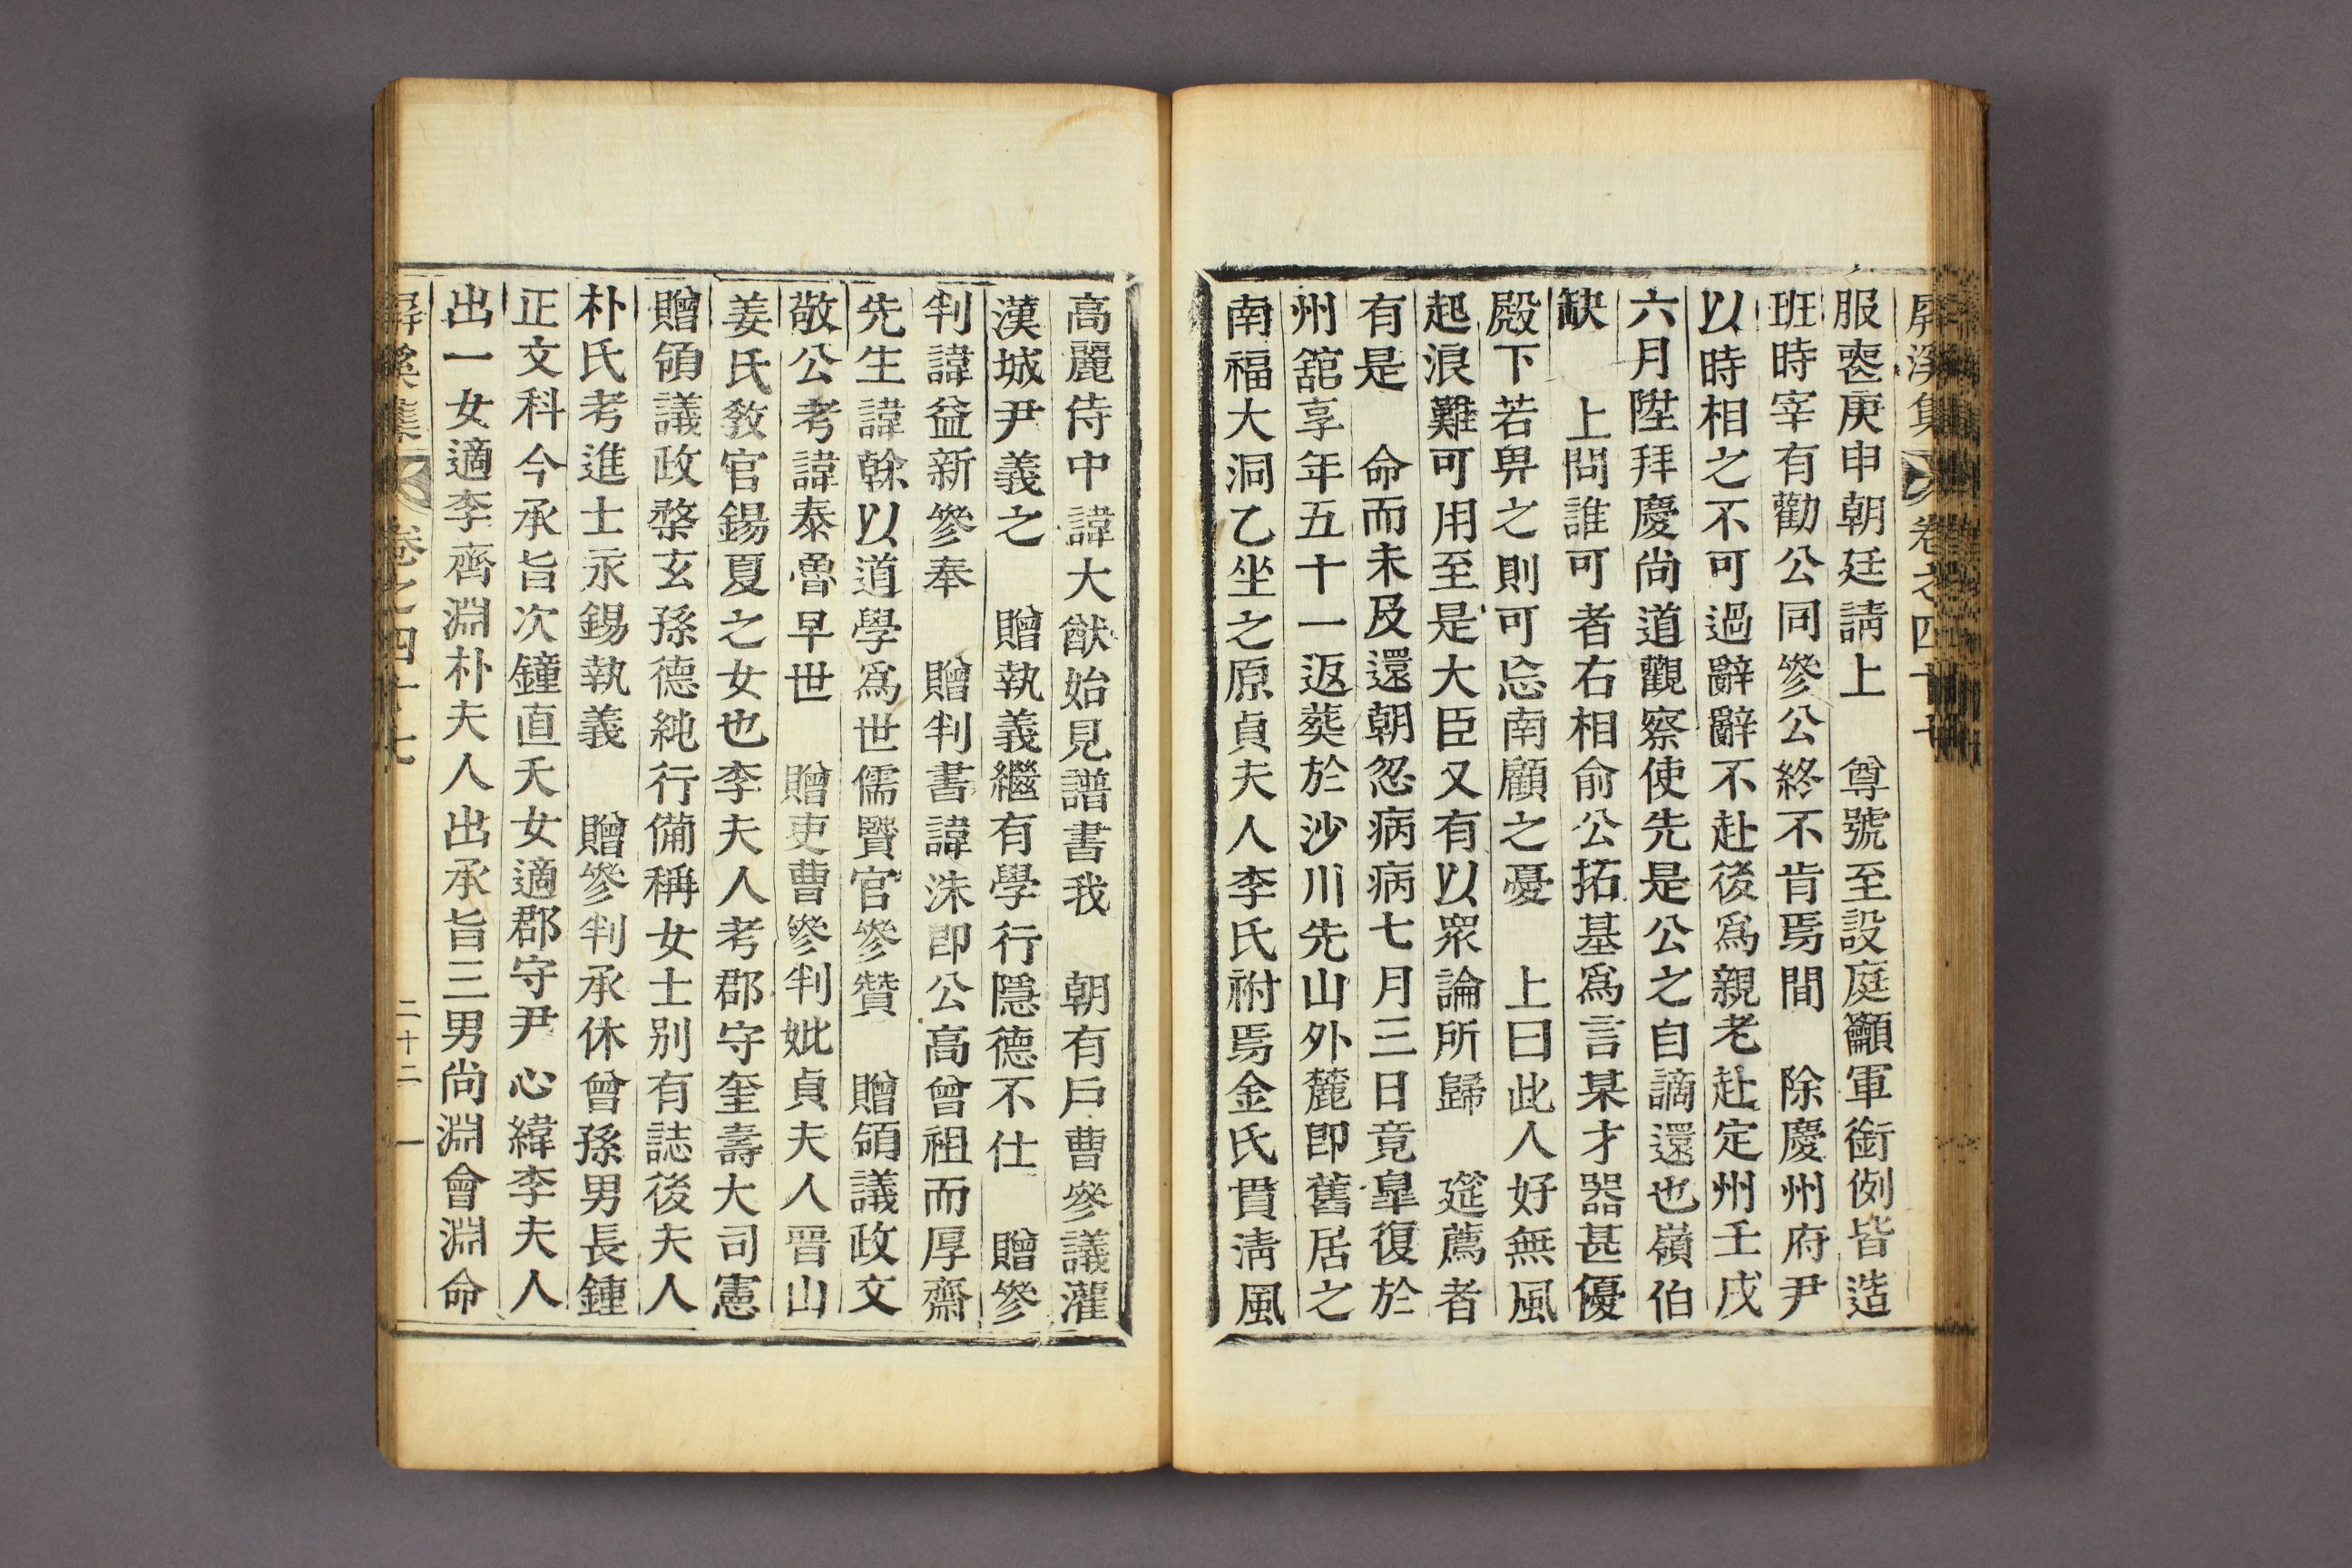 屛溪集 卷之四十七
服喪庚申朝廷請上 尊號至設庭籲軍銜例皆造
班時宰有勸公同參公終不肯焉間 除慶州府尹
以時相之不可過辭辭不赴後爲親老赴定州壬戌
六月陞拜慶尙道觀察使先是公之自謫還也嶺伯
缺 上問誰可者右相俞公拓基爲言某才器甚優
殿下若畀之則可忘南顧之憂 上曰此人好無風
起浪難可用至是大臣又有以眾論所歸 筵薦者
有是 命而未及還朝忽病病七月三日竟皐復於
州舘享年五十一返葬於沙川先山外麓卽舊居之
南福大洞乙坐之原貞夫人李氏祔焉金氏貫淸風
高麗侍中諱大猷始見譜書我 朝有戶曹參議灌
漢城尹義之 贈執義繼有學行隱德不仕 贈參
判諱益新參奉 贈判書諱洙卽公高曾祖而厚齋
先生諱榦以道學爲世儒賢官參贊 贈領議政文
敬公考諱泰魯早世 贈吏曹參判妣貞夫人晋山
姜氏敎官錫夏之女也李夫人考郡守奎壽大司憲
贈領議政楘玄孫德純行備稱女士別有誌後夫人
朴氏考進士永錫執義 贈參判承休曾孫男長鍾
正文科今承旨次鐘直夭女適郡守尹心緯李夫人
出一女適李齊淵朴夫人出承旨三男尙淵會淵命
屛溪集 卷之四十七 二十二